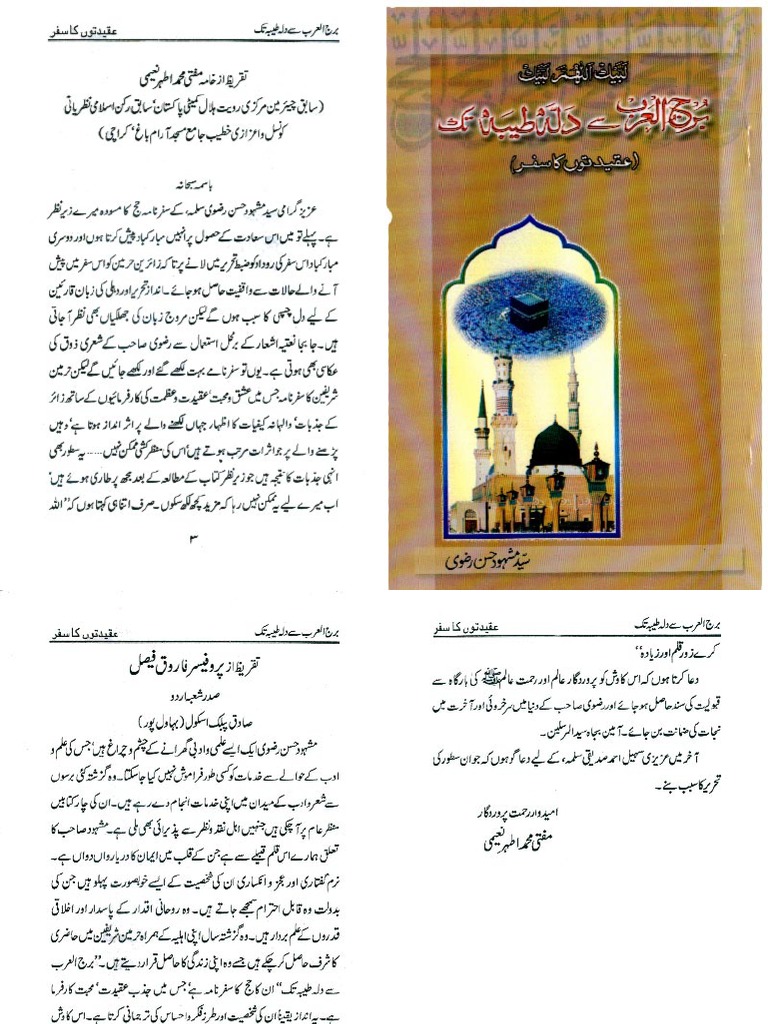 لبیک اللھم لبیک
برج العرب سے دلہ طیبہ تک
(عقیدتوں کا سفر)
سیّد مشہود حسن رضوی
برج العرب سے دلہ طیبہ تک
عقیدتوں کا سفر
تقریظ از خامہ مفتی محمد اطہر نعیمی
(سابق چیئرمین مرکزی رویت ہلال کمیٹی پاکستان' سابق رکن اسلامی نظریاتی
کونسل و اعزازی خطیب جامع مسجد آرام باغ' کراچی)
باسمہ سبحانہ
عزیز گرامی سید مشہود حسن رضوی سلمہ، کے سفر نامہ حج کا مسودہ میرے زیر نظر
ہے۔ پہلے تو میں اس سعادت کے حصول پر انہیں مبارکباد پیش کرتا ہوں اور دوسری
مبارکباد اس سفر کی روداد کو ضبط تحریر میں لانے پر تاکہ زائرین حرمین کو اس سفر میں پیش
آنے والے حالات سے واقفیت حاصل ہو جائے۔ انداز تحریر اور دہلی کی زبان قارئین
کے لیے دل چسپی کا سبب ہوں گے لیکن مروج زبان کی جھلکیاں بھی نظر آ جاتی
ہیں۔ جا بجا نعتیہ اشعار کے برمحل استعمال سے رضوی صاحب کے شعری ذوق کی
عکاسی بھی ہوتی ہے۔ یوں تو سفر نامے بہت لکھے گئے اور لکھے جائیں گے لیکن حرمین
شریفین کا سفر نامہ جس میں عشق و محبت' عقیدت و عظمت کی کارفرمائیوں کے ساتھ زائر
کے جذبات' والہانہ کیفیات کا اظہار جہاں لکھنے والے پر اثر انداز ہوتا ہے' وہیں
پڑھنے والے پر جو اثرات مرتب ہوتے ہیں' اس کی منظر کشی ممکن نہیں...... یہ سطور بھی
انہی جذبات کا نتیجہ ہیں جو زیر نظر کتاب کے مطالعہ کے بعد مجھ پر طاری ہوئے ہیں'
اب میرے لیے یہ ممکن نہیں رہا کہ مزید کچھ لکھ سکوں۔ صرف اتنا ہی کہتا ہوں کہ "اللہ
۳
برج العرب سے دلہ طیبہ تک
عقیدتوں کا سفر
کرے زور قلم اور زیادہ"
دعا کرتا ہوں کہ اس کاوش کو پروردگار عالم اور رحمت عالم ﷺ کی بارگاہ سے
قبولیت کی سند حاصل ہو جائے اور رضوی صاحب کے دنیا میں سرخروئی اور آخرت میں
نجات کی ضمانت بن جائے۔ آمین بجاہ سید المرسلین۔
آخر میں عزیزی سہیل احمد صدیقی سلمہ، کے لیے دعا گو ہوں کہ جو ان سطور کی
تحریر کا سبب بنے۔
امیدوار رحمت پروردگار
مفتی محمد اطہر نعیمی
برج العرب سے دلہ طیبہ تک
عقیدتوں کا سفر
تقریظ از پروفیسر فاروق فیصل
صدر شعبہ اردو
صادق پبلک اسکول (بہاول پور)
مشہود حسن رضوی ایک ایسے علمی و ادبی گھرانے کے چشم و چراغ ہیں' جس کی علم و
ادب کے حوالے سے خدمات کو کسی طور فراموش نہیں کیا جا سکتا۔ وہ گزشتہ کئی برسوں
سے شعر و ادب کے میدان میں اپنی خدمات انجام دے رہے ہیں۔ ان کی چار کتابیں
منظر عام پر آ چکی ہیں جنہیں اہل نقد و نظر سے پذیرائی بھی ملی ہے۔ مشہود صاحب کا
تعلق ہمارے اس قلم قبیلے سے ہے جن کے قلب میں ایمان کا دریا رواں دواں ہے۔
نرم گفتاری اور عجز و انکساری ان کی شخصیت کے ایسے خوبصورت پہلو ہیں جن کی
بدولت وہ قابل احترام سمجھے جاتے ہیں۔ وہ روحانی اقدار کے پاسدار اور اخلاقی
قدروں کے علم بردار ہیں۔ وہ گزشتہ سال اپنی اہلیہ کے ہمراہ حرمین شریفین میں حاضری
کا شرف حاصل کر چکے ہیں جسے وہ اپنی زندگی کا حاصل قرار دیتے ہیں۔ "برج العرب
سے دلہ طیبہ تک" ان کا حج کا سفر نامہ ہے' جس میں جذب عقیدت' محبت کارفرما
ہے۔ یہ انداز یقیناً ان کی شخصیت اور طرز فکر و احساس کی ترجمانی کرتا ہے۔ اس کاوش